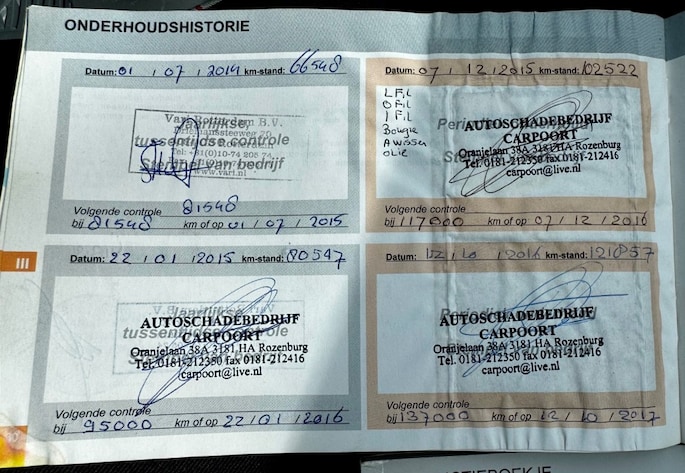 ONDERHOUDSHISTORIE
Datum: 01 / 07 / 2014 km-stand: 66548
Van Rotterdam B.V.
Jaarlijkse
tussentijdse controle
Stempel van bedrijf
Volgende controle 81548
bij 81548 km of op 01 / 07 / 2015
Datum: 07 / 12 / 2015 km-stand: 102522
L Fil
O Fil
I Fil
Bougie
A wisser
OLIE
AUTOSCHADEBEDRIJF
CARPOORT
Oranjelaan 38A 3181 HA Rozenburg
Tel. 0181-212350 fax 0181-212416
carpoort@live.nl
Volgende controle
bij 117000 km of op 07 / 12 / 2016
III
Datum: 22 / 01 / 2015 km-stand: 80547
Jaarlijkse
tussentijdse controle
AUTOSCHADEBEDRIJF
CARPOORT
Oranjelaan 38A 3181 HA Rozenburg
Tel. 0181-212350 fax 0181-212416
carpoort@live.nl
Volgende controle
bij 95000 km of op 22 / 01 / 2016
Datum: 12 / 10 / 2016 km-stand: 121857
AUTOSCHADEBEDRIJF
CARPOORT
Oranjelaan 38A 3181 HA Rozenburg
Tel. 0181-212350 fax 0181-212416
carpoort@live.nl
Volgende controle
bij 137000 km of op 12 / 10 / 2017